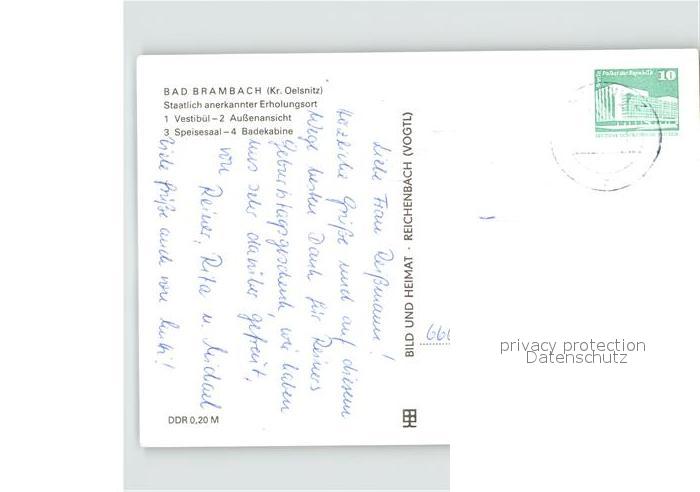 BAD BRAMBACH (Kr. Oelsnitz)
Staatlich anerkannter Erholungsort
1 Vestibül – 2 Außenansicht
3 Speisesaal – 4 Badekabine
Liebe Frau Reißmann!
Herzliche Grüße und auf diesem
Wege besten Dank für Reiners
Geburtstagsgeschenk, wir haben
uns sehr darüber gefreut.
von Reiner, Rita u. Michael
Viele Grüße auch von
BILD UND HEIMAT · REICHENBACH (VOGTL)
DDR 0,20 M
10
666
privacy protection
Datenschutz